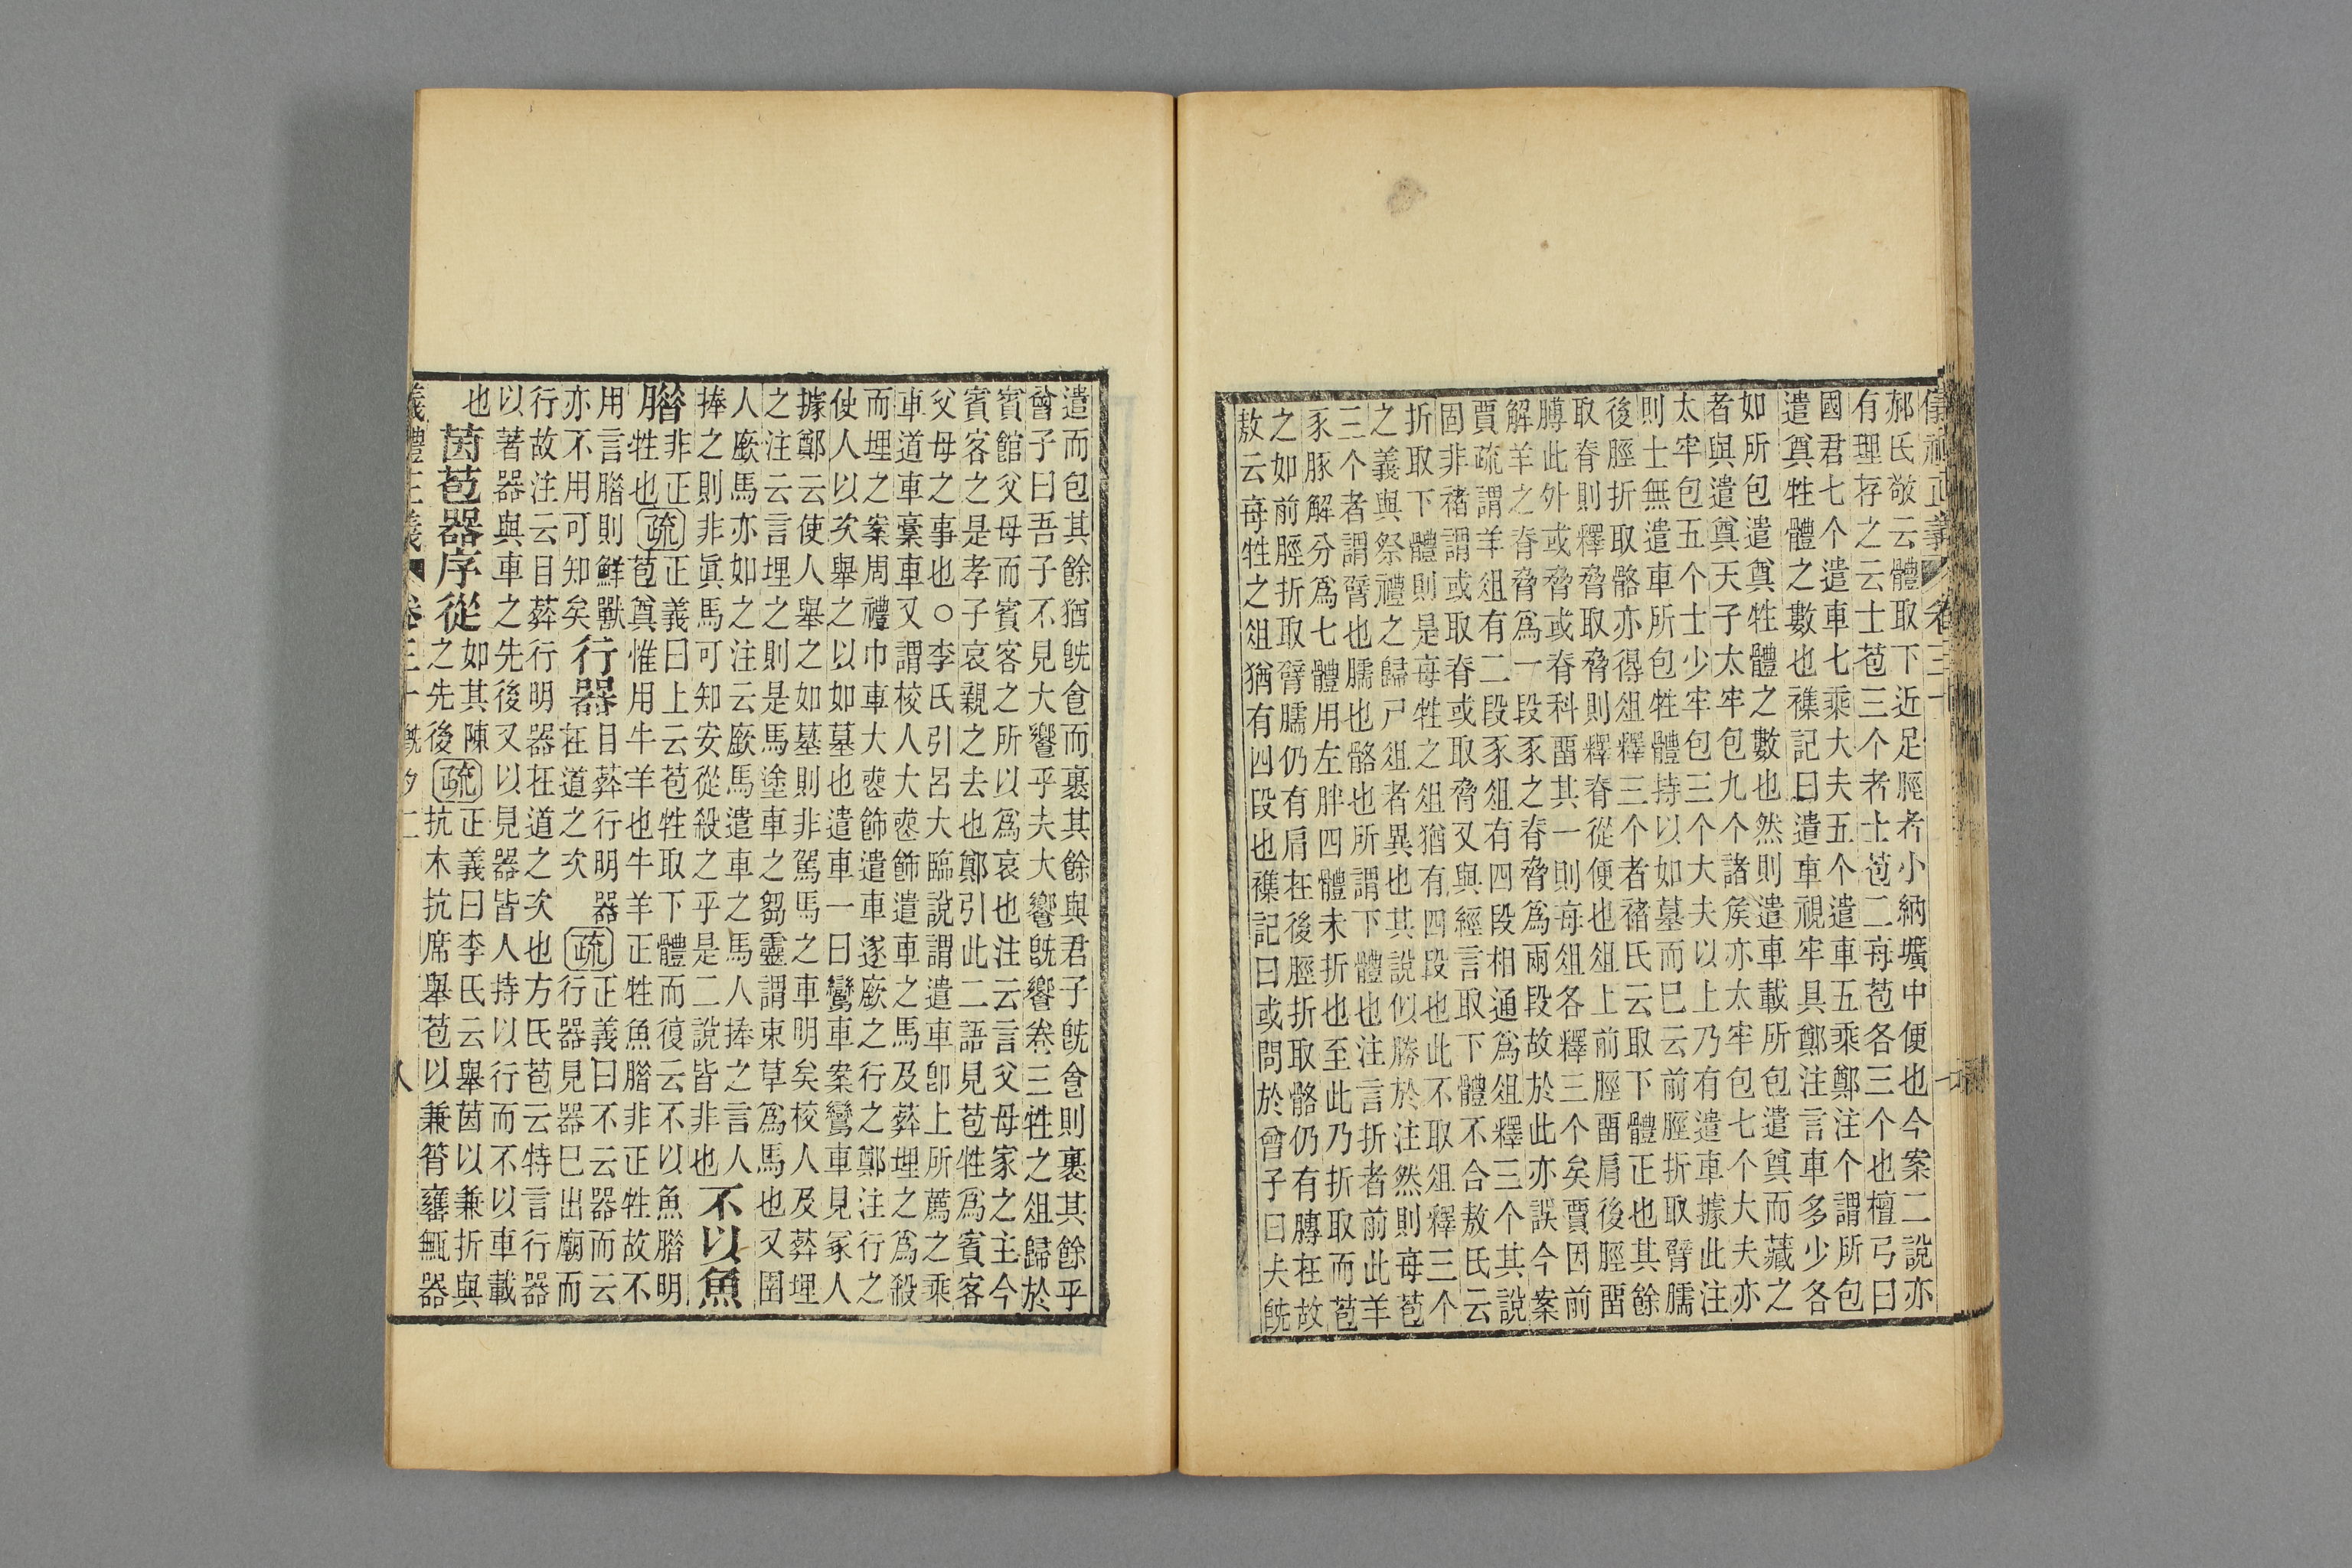 儀禮正義 卷三十
郝氏敬云體取下近足脛者小納壙中便也今案二說亦
有理存之云士苞三个者士苞二每苞各三个也檀弓曰
國君七个遣車七乘大夫五个遣車五乘鄭注个謂所包
遣奠牲體之數也襍記曰遣車視牢具鄭注言車多少各
如所包遣奠牲體之數也然則遣車載所包遣奠而藏之
者與遣奠天子太牢包九个諸矦亦太牢包七个大夫亦
太牢包五个士少牢包三个大夫以上乃有遣車據此注
則士無遣車所包牲體持以如墓而巳云前脛折取臂臑
後脛折取骼亦得俎釋三个者褚氏云取下體正也其餘
取脊則釋脅取脅則釋脊從便也俎上前脛畱肩後脛畱
膊此外或脅或脊科畱其一則每俎各釋三个矣賈因前
解羊之脊脅爲一段豕之脊脅爲兩段故於此亦誤今案
賈疏謂羊俎有二段豕俎有四段相通爲俎釋三个其說
固非褚謂或取脊或取脅又與經言取下體不合敖氏云
折取下體則是每牲之俎猶有四段也此不取俎釋三个
之義與祭禮之歸尸俎者異也其說似勝於注然則每苞
三个者謂臂也臑也骼也所謂下體也注言折者前此羊
豕豚解分爲七體用左胖四體未折也至此乃折取而苞
之如前脛折取臂臑仍有肩在後脛折取骼仍有膊在故
敖云每牲之俎猶有四段也襍記曰或問於曾子曰夫旣
遣而包其餘猶旣食而裹其餘與君子旣食則裹其餘乎
曾子曰吾子不見大饗乎夫大饗旣饗卷三牲之俎歸於
賓館父母而賓客之所以爲哀也注云言父母家之主今
賓客之是孝子哀親之去也鄭引此二語見苞牲爲賓客
父母之事也○李氏引呂大臨說謂遣車卽上所薦之乘
車道車稾車又謂校人大喪飾遣車之馬及葬埋之爲殺
而埋之案周禮巾車大喪飾遣車遂廞之行之鄭注行之
使人以次舉之以如墓也遣車一曰鸞車案鸞車見冢人
據鄭云使人舉之如墓則非駕馬之車明矣校人及葬埋
之注云言埋之則是馬塗車之芻靈謂束草爲馬也又圉
人廞馬亦如之注云廞馬遣車之馬人捧之言人
捧之則非眞馬可知安從殺之乎是二說皆非也 不以魚
腊 非正牲也 疏 正義曰上云苞牲取下體而復云不以魚腊明苞奠惟用牛羊也牛羊正牲魚腊非正牲故不
用言腊則鮮獸亦不用可知矣 行器 目葬行明器在道之次 疏 正義曰不云器而云行器見器巳出廟而
行故注云目葬行明器在道之次也方氏苞云特言行器
以著器與車之先後又以見器皆人持以行而不以車載
也
茵苞器序從 如其陳之先後 疏 正義曰李氏云舉茵以兼折與抗木抗席舉苞以兼筲罋甒器
義禮正義 卷三十 旣夕二 八